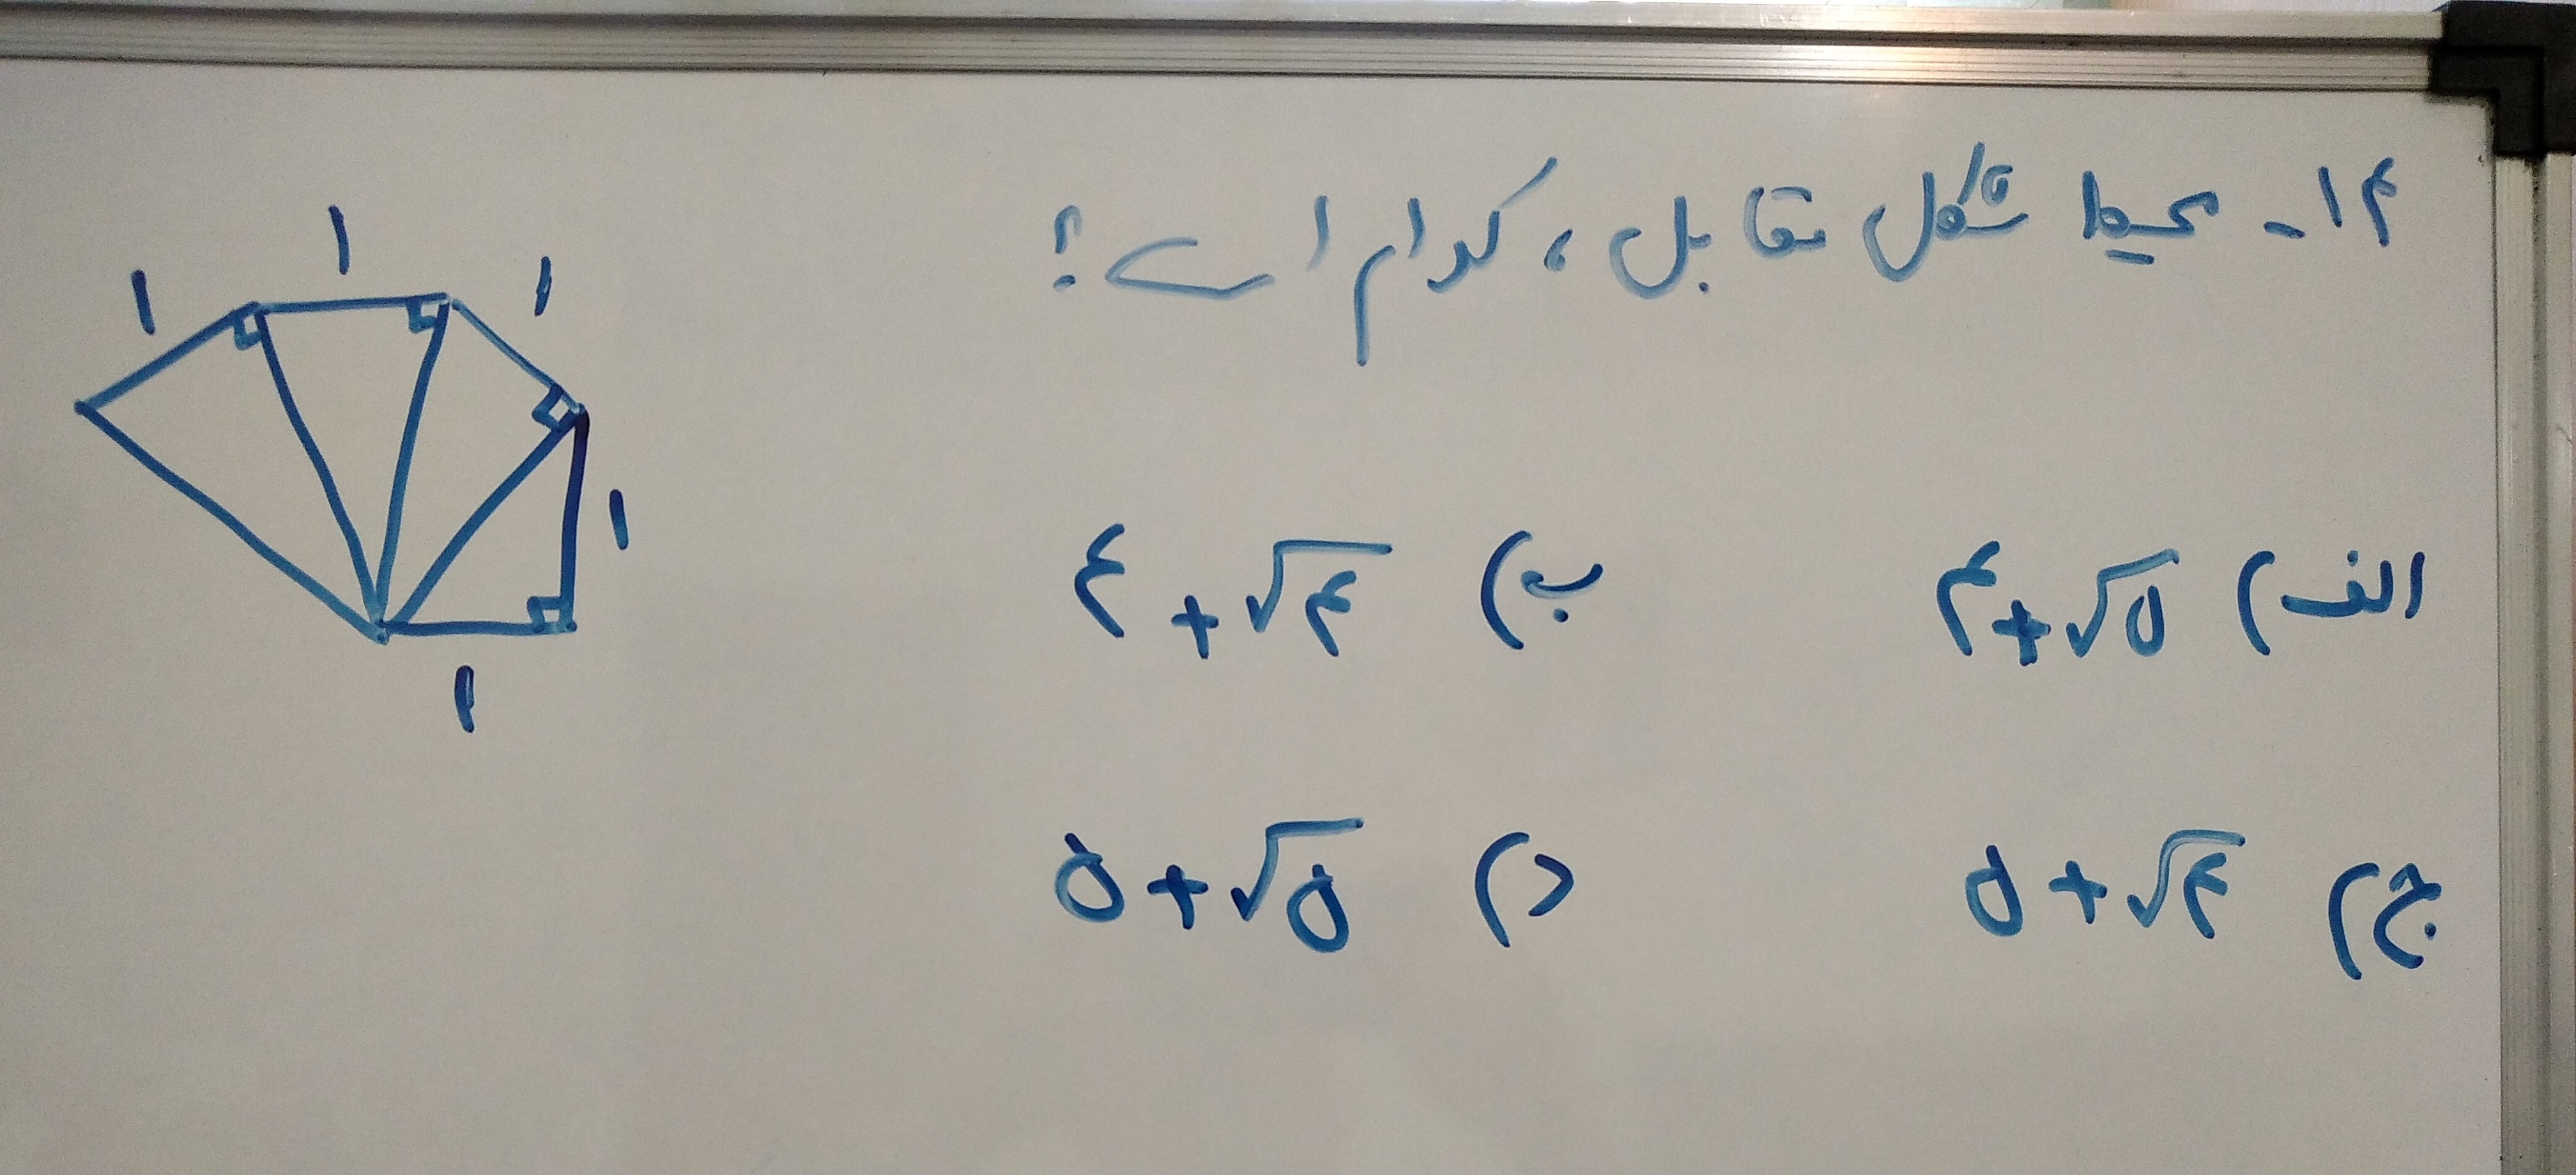 ۱۴- محیط شکل مقابل، کدام است؟
الف) ۴+√۵
ب) ۴+√۴
ج) ۵+√۴
د) ۵+√۵
۱
۱
۱
۱
۱